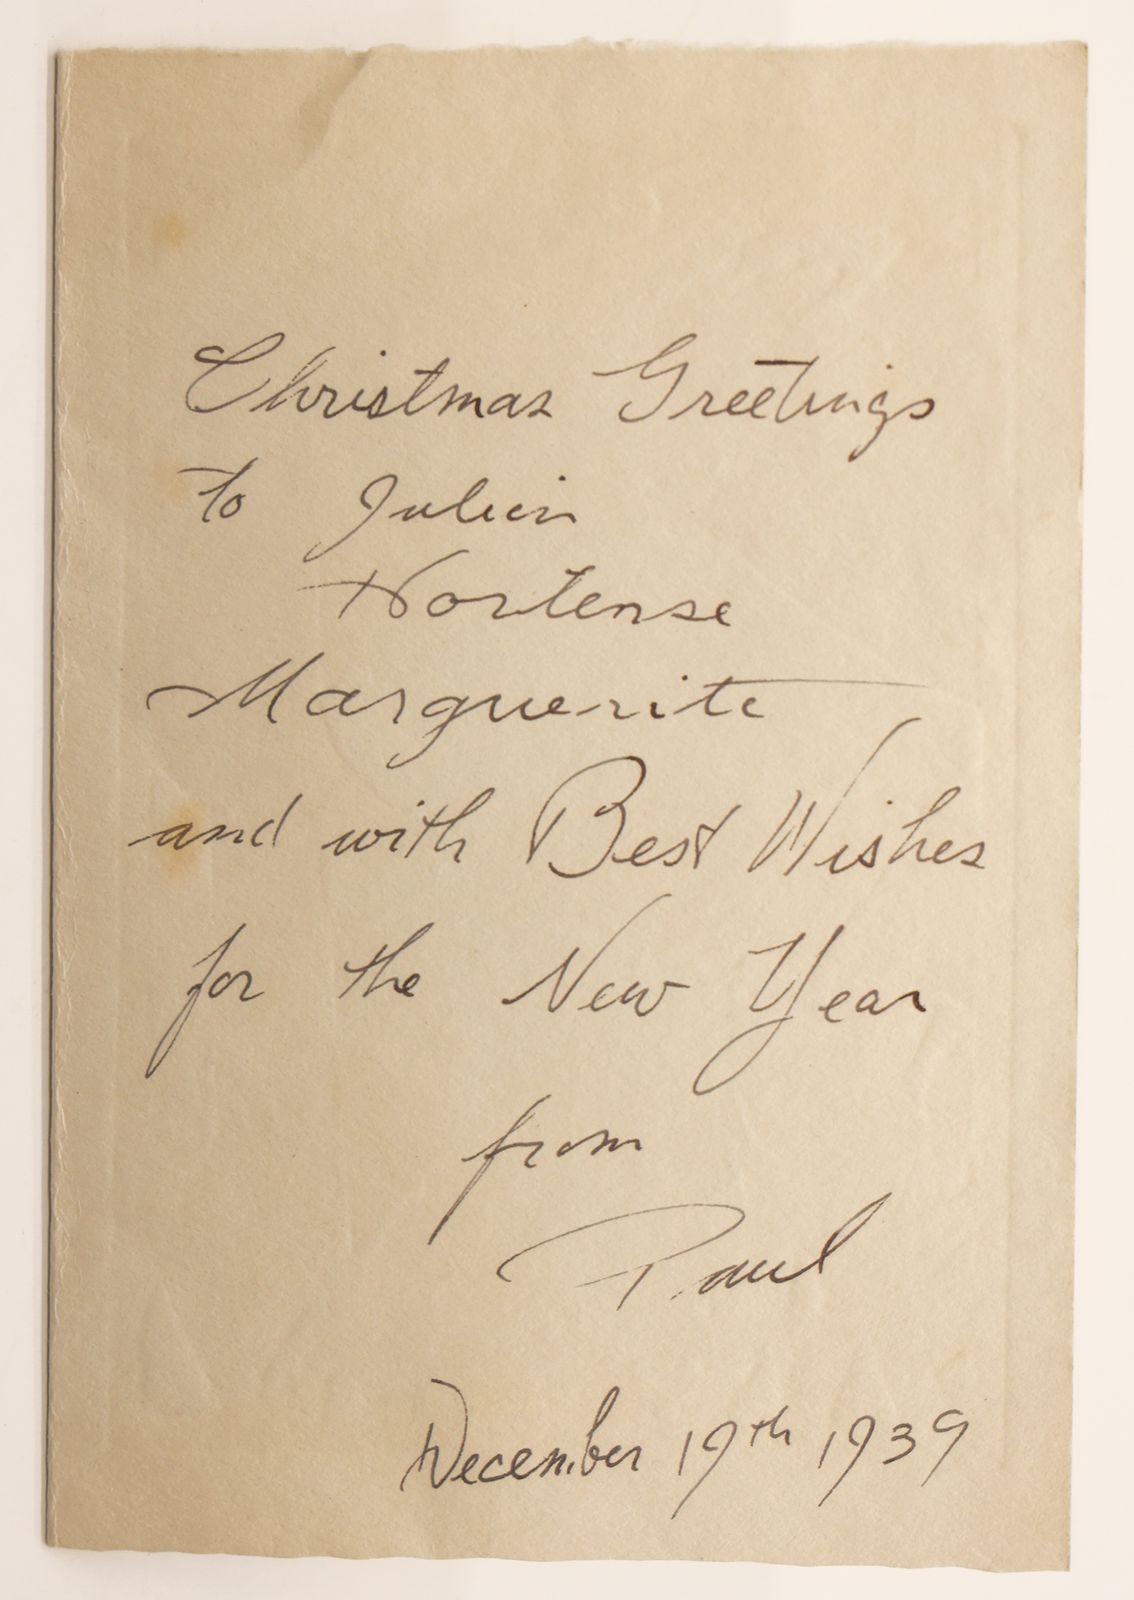 Christmas Greetings
to Julien
Hortense
Marguerite
and with Best Wishes
for the New Year
from
Paul
December 19th 1939